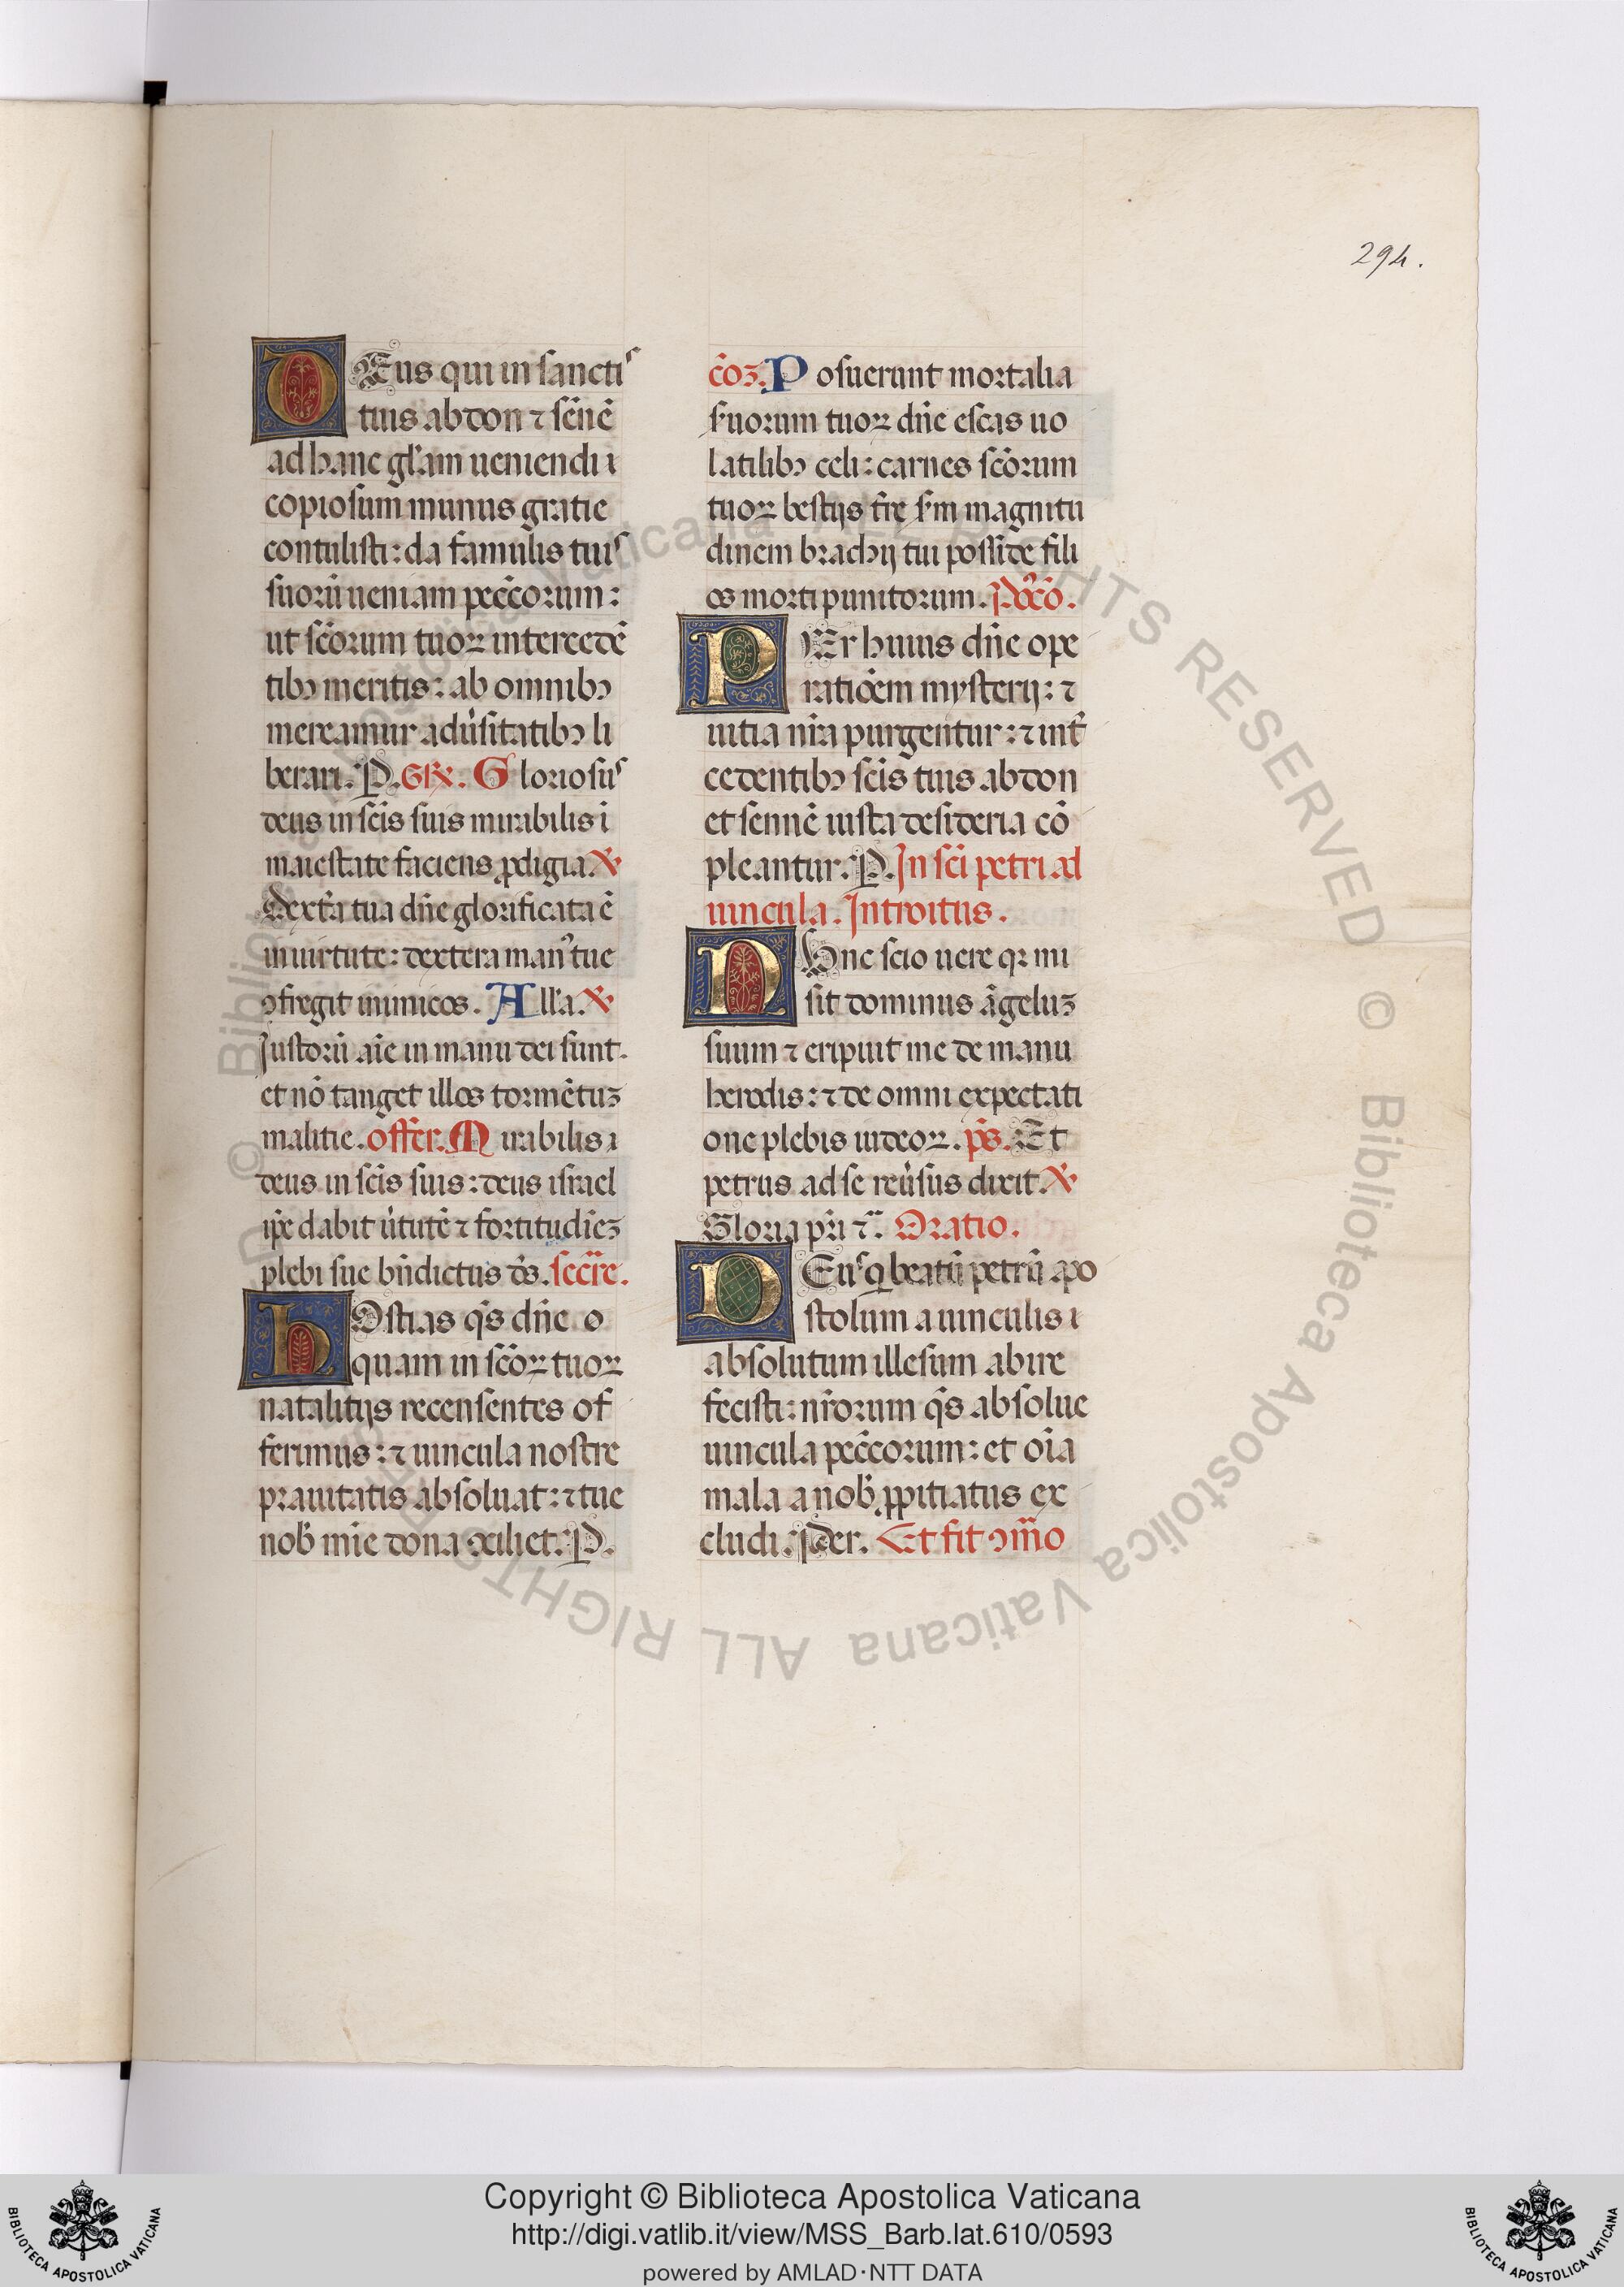 294.
DEus qui in sanctis
tuis abdon ⁊ sēnē
ad hanc gl̄am ueniendi i
copiosum munus gratie
contulisti: da famulis tuis
suorū ueniam pecc̄orum:
ut sc̄orum tuoꝝ intercedē
tibꝰ meritis: ab omnibꝰ
mereamur aduʼsitatibꝰ li
berari. P. GR. Gloriosus
deus in sc̄is suis mirabilis ī
maiestate faciens ꝓdigia. ℣
Dext̄a tua dn̄e glorificata ē
in uirtute: dextera manꝰ tue
ꝯfregit inimicos. All̄a. ℣
Justorū aīe in manu dei sunt.
et nō tanget illos tormētuꝫ
malitie. offer. Mirabilis i
deus in sc̄is suis: deus israel
ip̄e dabit uʼtutē ⁊ fortitudīeꝫ
plebi sue bn̄dictus dʼs. secr̄e.
hOstias qʼs dn̄e o
quam in sc̄oꝝ tuoꝝ
natalitijs recensentes of
ferimus: ⁊ uincula nostre
prauitatis absoluat: ⁊ tue
nob̄ mīe dona ꝯciliet. P.
c̄oꝫ. Posuerunt mortalia
sʼuorum tuoꝝ dn̄e escas uo
latilibꝰ celi: carnes sc̄orum
tuoꝝ bestijs t̄rę sʼm magnitu
dinem brachij tui posside fili
os morti punitorum. Poc̄o.
PEr huius dn̄e ope
ratiōem mysterij: ⁊
uitia nr̄a purgentur: ⁊ int̄
cedentibꝰ sc̄is tuis abdon
et sennē iusta desideria cō
pleantur. P. In sc̄i petri ad
uincula. Introitus.
NUnc scio uere qꝛ mi
sit dominus āgeluꝫ
suum ⁊ eripuit me de manu
herodis: ⁊ de omni expectati
one plebis iudeoꝝ. pʼs. Et
petrus ad se reuʼsus dixit. ℣
Gloria pr̄i ⁊c̄. Oratio.
DEus q̄ beatū petrū apo
stolum a uinculis i
absolutum illesum abire
fecisti: nr̄orum qʼs absolue
uincula pecc̄orum: et oīa
mala a nob̄ ꝓpitiatus ex
cludi. Per. Et fit ꝯm̄o
© Biblioteca Apostolica Vaticana ALL RIGHTS RESERVED
Copyright © Biblioteca Apostolica Vaticana
http://digi.vatlib.it/view/MSS_Barb.lat.610/0593
powered by AMLAD·NTT DATA
BIBLIOTECA APOSTOLICA VATICANA
BIBLIOTECA APOSTOLICA VATICANA